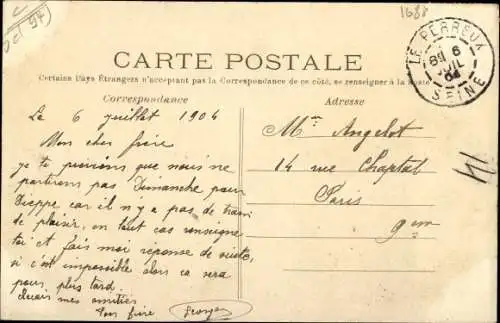 1688
LE PERREUX
6
JUIL
04
SEINE
CARTE POSTALE
Certains Pays Étrangers n'acceptant pas la Correspondance de ce côté, se renseigner à la Poste
Correspondance
Adresse
Le 6 juillet 1904
Mon cher frère
je te préviens que nous ne
partirons pas Dimanche pour
Dieppe car il n'y a pas de train
de plaisir, en tout cas renseigne
toi et fais moi réponse de suite,
si c'est impossible alors ca sera
pour plus tard.
mes amitiés
Ton frère Georges
Mr Angelot
14 rue Chaptal
Paris
9em